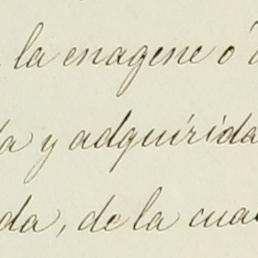 la enagene ó
y adquirida
da, de la cua